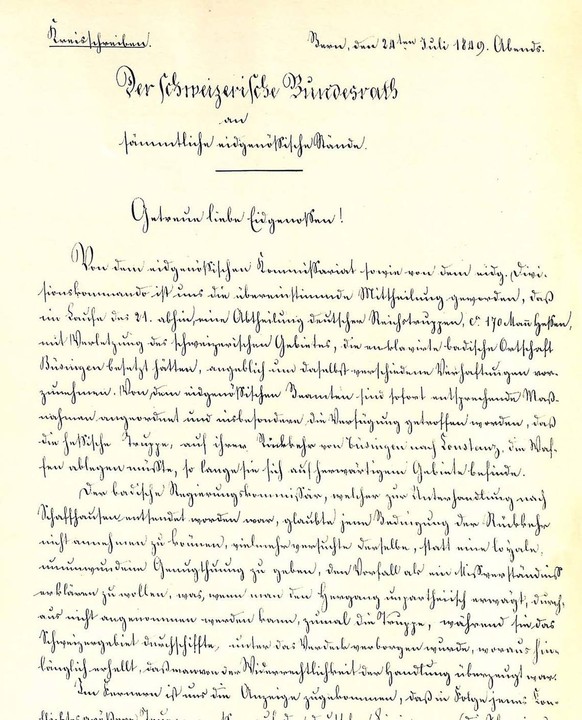 Kreisschreiben.
Bern, den 24ten Juli 1849. Abends.
Der schweizerische Bundesrath
an
sämmtliche eidgenössische Stände.
Getreue liebe Eidgenossen!
Von dem eidgenössischen Kommissariat sowie von dem eidg. Divi-
sionskommando ist uns die übereinstimmende Mittheilung geworden, daß
im Laufe des 21. abhin eine Abtheilung deutscher Reichstruppen, ca 170 Mañ Hessen,
mit Verletzung des schweizerischen Gebietes, die enklavirte badische Ortschaft
Büsingen besetzt hätten, angeblich um daselbst verschiedene Verhaftungen vor-
zunehmen. Von den eidgenössischen Beamten sind sofort entsprechende Maß-
nahmen angeordnet und insbesondere die Verfügung getroffen worden, daß
die hessische Truppe, auf ihrer Rückkehr von Büsingen nach Constanz, die Waf-
fen ablegen müßte, so lange sie sich auf herwärtigem Gebiete befinde.
Der badische Regierungskommissär, welcher zur Unterhandlung nach
Schaffhausen entsendet worden war, glaubte jene Bedingung der Rückkehr
nicht annehmen zu können, vielmehr versuchte derselbe, statt eine loyale,
unumwundene Genugthuung zu geben, den Vorfall als ein Missverständniß
erklären zu wollen, was, wenn man den Hergang unpartheiisch erwägt, durch-
aus nicht angenommen werden kann, zumal die Truppe, während sie das
Schweizergebiet durchschiffte, unter das Verdeck verborgen wurde, woraus hin-
länglich erhellt, daß man von der Widerrechtlichkeit der Handlung überzeugt war.
Im Fernern ist uns die Anzeige zugekommen, daß in Folge jenes Kon-